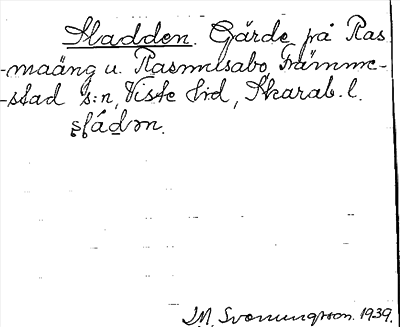 Sladden. Gärde på Ras
-maäng u. Rasmusabo, Främme-
-stad s:n, Viste hd, Skarab. l.
sládən.
I M. Svenungsson. 1939.